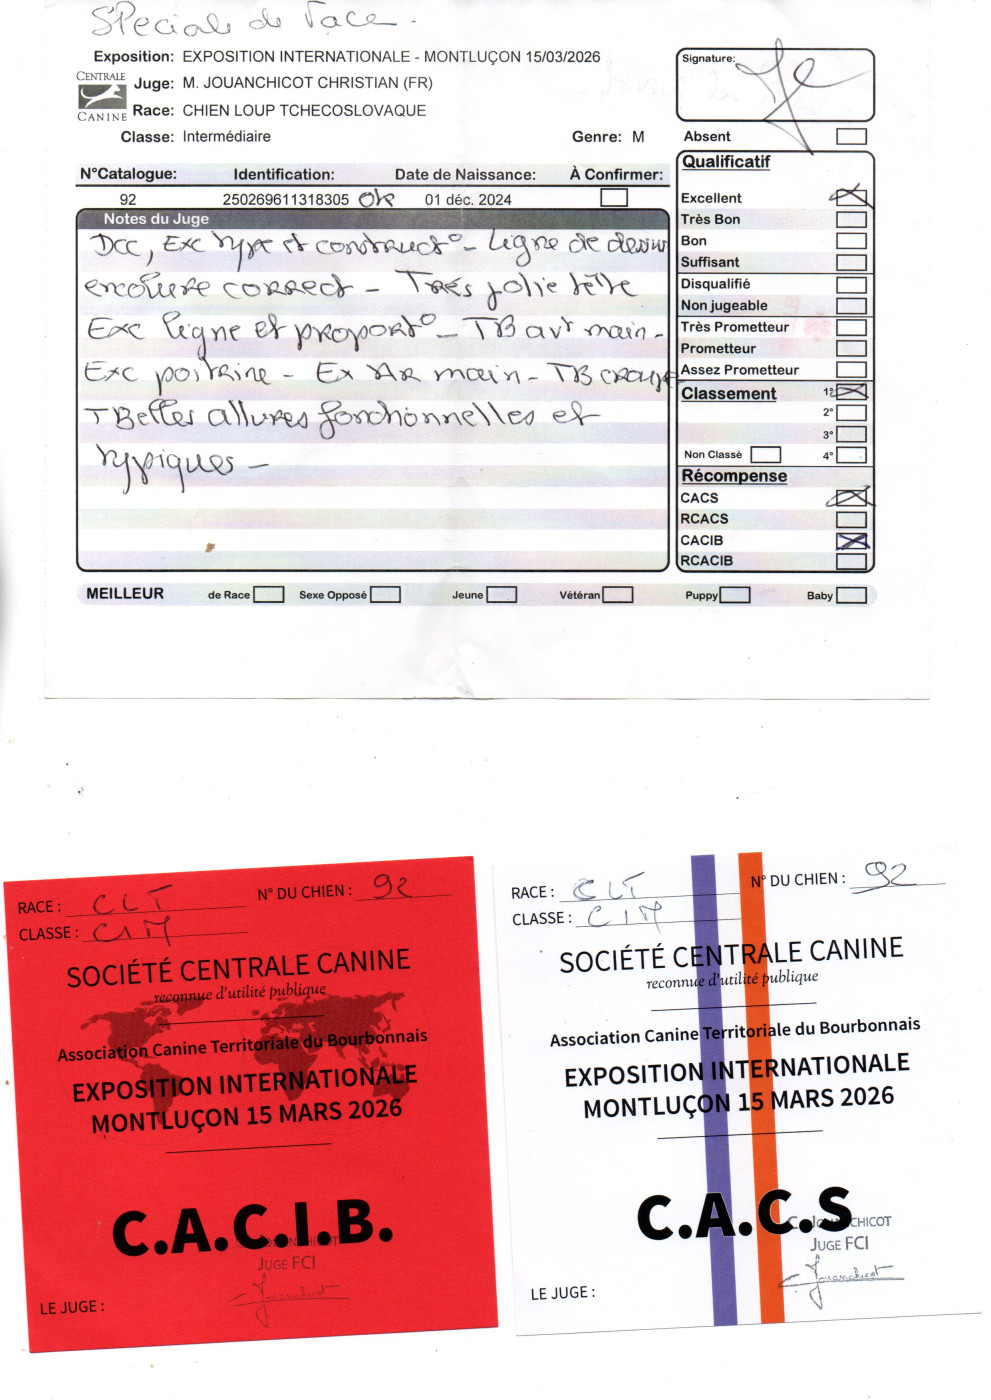 Spéciale de race -
Exposition: EXPOSITION INTERNATIONALE - MONTLUÇON 15/03/2026
CENTRALE CANINE
Juge: M. JOUANCHICOT CHRISTIAN (FR)
Race: CHIEN LOUP TCHECOSLOVAQUE
Classe: Intermédiaire Genre: M
Signature:
Absent
N°Catalogue: Identification: Date de Naissance: À Confirmer:
92 250269611318305 OK 01 déc. 2024
Notes du Juge
Dcc, Exc type et construct° - Ligne de dessus
encolure correct - Très jolie tête
Exc ligne et proport° - TB avt main -
Exc poitrine - Ex Ar main - TB croupe
TBelles allures fonctionnelles et
typiques -
Qualificatif
Excellent
Très Bon
Bon
Suffisant
Disqualifié
Non jugeable
Très Prometteur
Prometteur
Assez Prometteur
Classement 1°
2°
3°
Non Classé 4°
Récompense
CACS
RCACS
CACIB
RCACIB
MEILLEUR de Race Sexe Opposé Jeune Vétéran Puppy Baby
RACE : CLT N° DU CHIEN : 92
CLASSE : CIM
SOCIÉTÉ CENTRALE CANINE
reconnue d'utilité publique
Association Canine Territoriale du Bourbonnais
EXPOSITION INTERNATIONALE
MONTLUÇON 15 MARS 2026
C.A.C.I.B.
C. JOUANCHICOT
JUGE FCI
Jouanchicot
LE JUGE :
RACE : CLT N° DU CHIEN : 92
CLASSE : CIM
SOCIÉTÉ CENTRALE CANINE
reconnue d'utilité publique
Association Canine Territoriale du Bourbonnais
EXPOSITION INTERNATIONALE
MONTLUÇON 15 MARS 2026
C.A.C.S
C. JOUANCHICOT
JUGE FCI
Jouanchicot
LE JUGE :